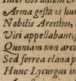 Arma gestat
Nobilis Areithoi,
Viri appellabant,
Quoniam non arc
Sed ferrea clava
Hunc Lycurgus